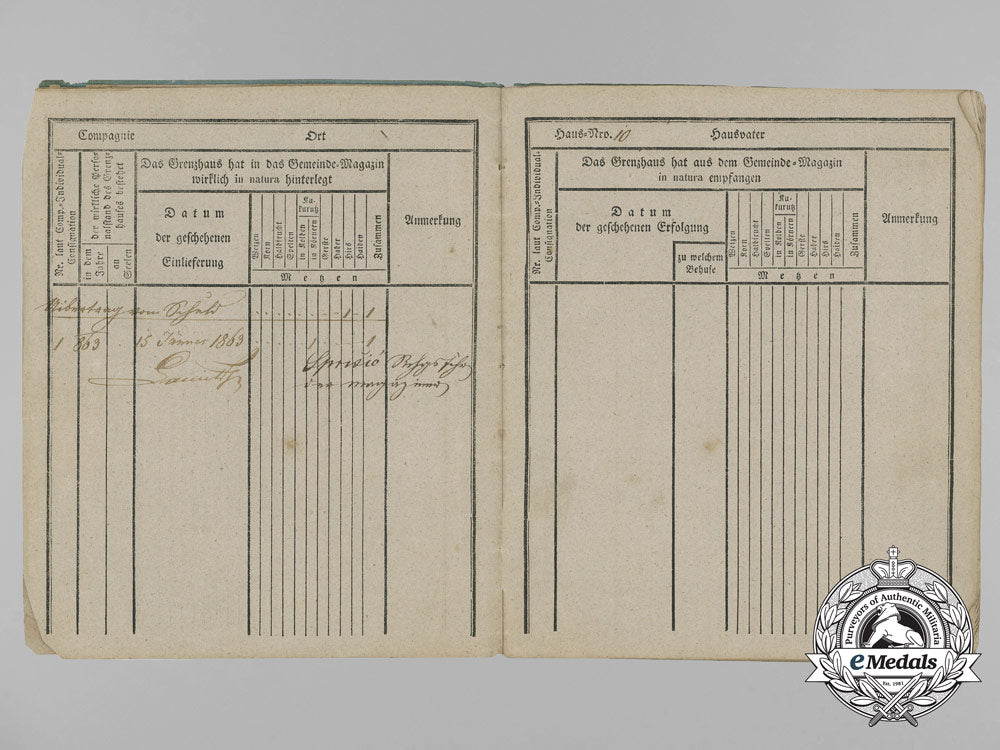 Compagnie Ort
Nr. laut Comp.=Individual=
Consignation
der wirkliche Perso=
nalstand des Grenz=
hauses bestehet
in dem
Jahre
an
Seelen
Das Grenzhaus hat in das Gemeinde=Magazin
wirklich in natura hinterlegt
Datum
der geschehenen
Einlieferung
Weizen
Korn
Halbfrucht
Speiten
Ku-
kurutz
in Kolben
in Körnern
Gerste
Haber
Hirs
Haiden
Zusammen
Metzen
Anmerkung
Uibertrag vom Schuld 1 1
1 863 15 Jänner 1863 1 1
der magaziner
Haus=Nro. 10 Hausvater
Nr. laut Comp.=Individual=
Consignation
Das Grenzhaus hat aus dem Gemeinde=Magazin
in natura empfangen
Datum
der geschehenen Erfolgung
zu welchem
Behufe
Weizen
Korn
Halbfrucht
Speiten
Ku-
kurutz
in Kolben
in Körnern
Gerste
Haber
Hirs
Haiden
Zusammen
Metzen
Anmerkung
Purveyors of Authentic Militaria
eMedals
Est. 1981